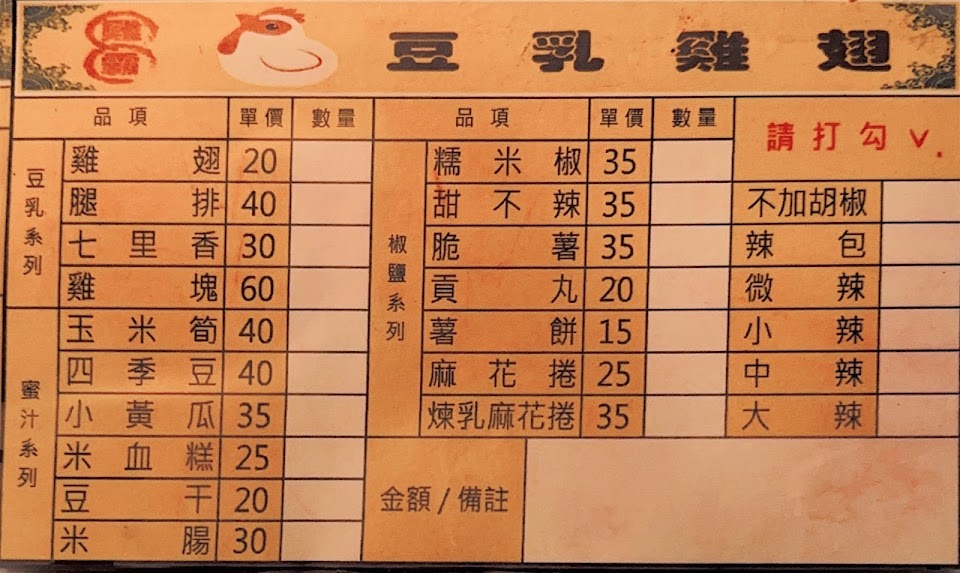 雞霸 豆乳雞翅
品項 單價 數量 品項 單價 數量 請打勾 v.
豆乳系列
雞翅 20
腿排 40
七里香 30
雞塊 60
蜜汁系列
玉米筍 40
四季豆 40
小黃瓜 35
米血糕 25
豆干 20
米腸 30
椒鹽系列
糯米椒 35
甜不辣 35
脆薯 35
貢丸 20
薯餅 15
麻花捲 25
煉乳麻花捲 35
不加胡椒
辣包
微辣
小辣
中辣
大辣
金額 / 備註